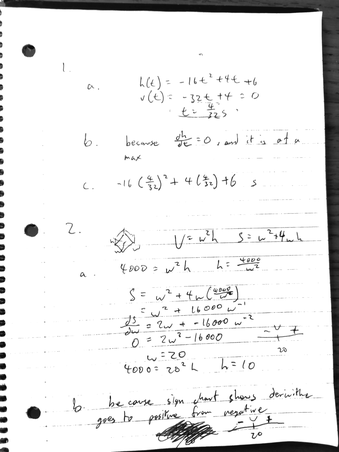 1.
a. h(t) = -16t² + 4t + 6
v(t) = -32t + 4 = 0
t = 4/32 s
b. because dh/dt = 0, and it is at a
max
c. -16(4/32)² + 4(4/32) + 6 s
2.
V = w²h S = w² + 4wh
a. 4000 = w²h h = 4000/w²
S = w² + 4w(4000/w²)
= w² + 16000 w⁻¹
dS/dw = 2w + -16000 w⁻²
0 = 2w³ - 16000
w = 20 - v +
4000 = 20² h h = 10 20
b. because sign chart shows derivitive
goes to positive from negative
- v +
20